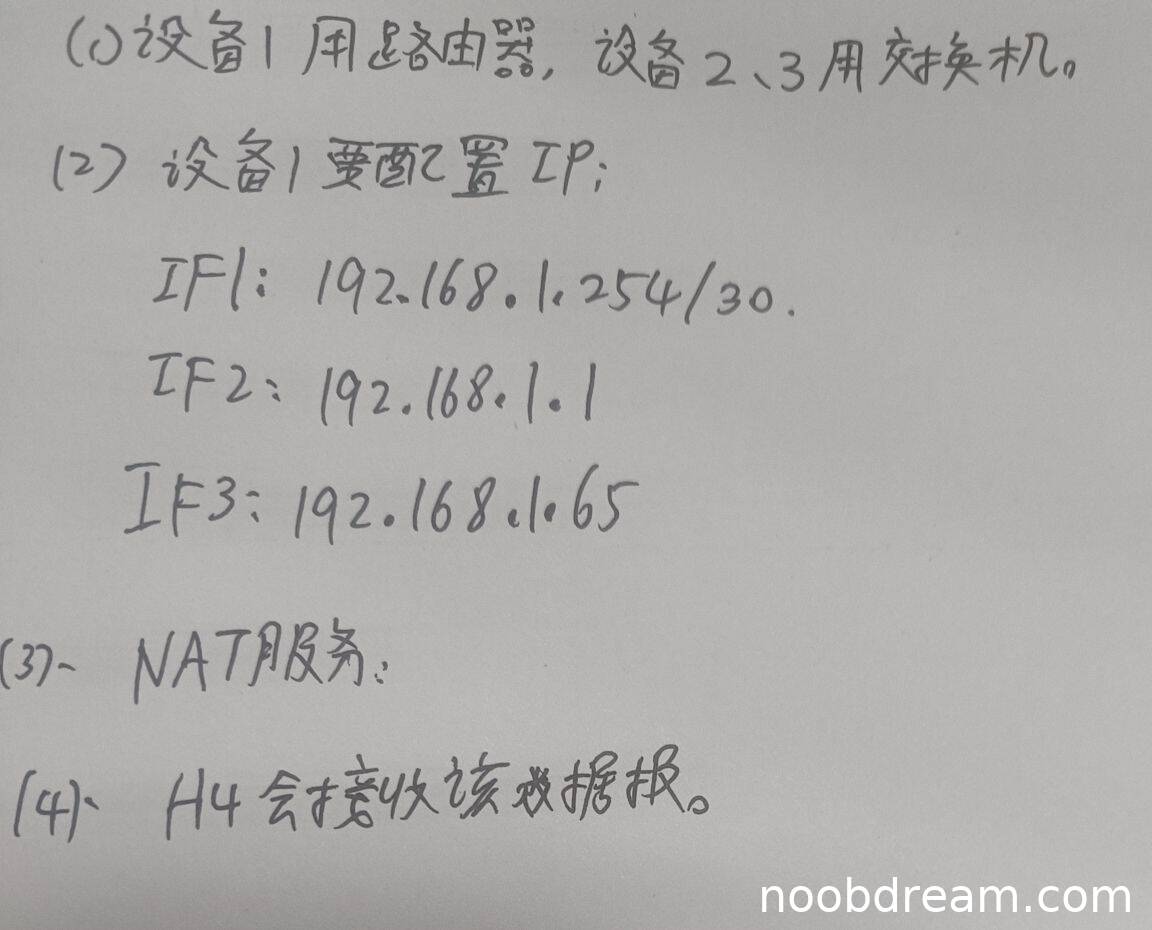 (1)设备1用路由器，设备2、3用交换机。
(2) 设备1要配置IP;
IF1: 192.168.1.254/30.
IF2: 192.168.1.1
IF3: 192.168.1.65
(3)、NAT服务;
(4)、H4会接收该数据报。
noobdream.com